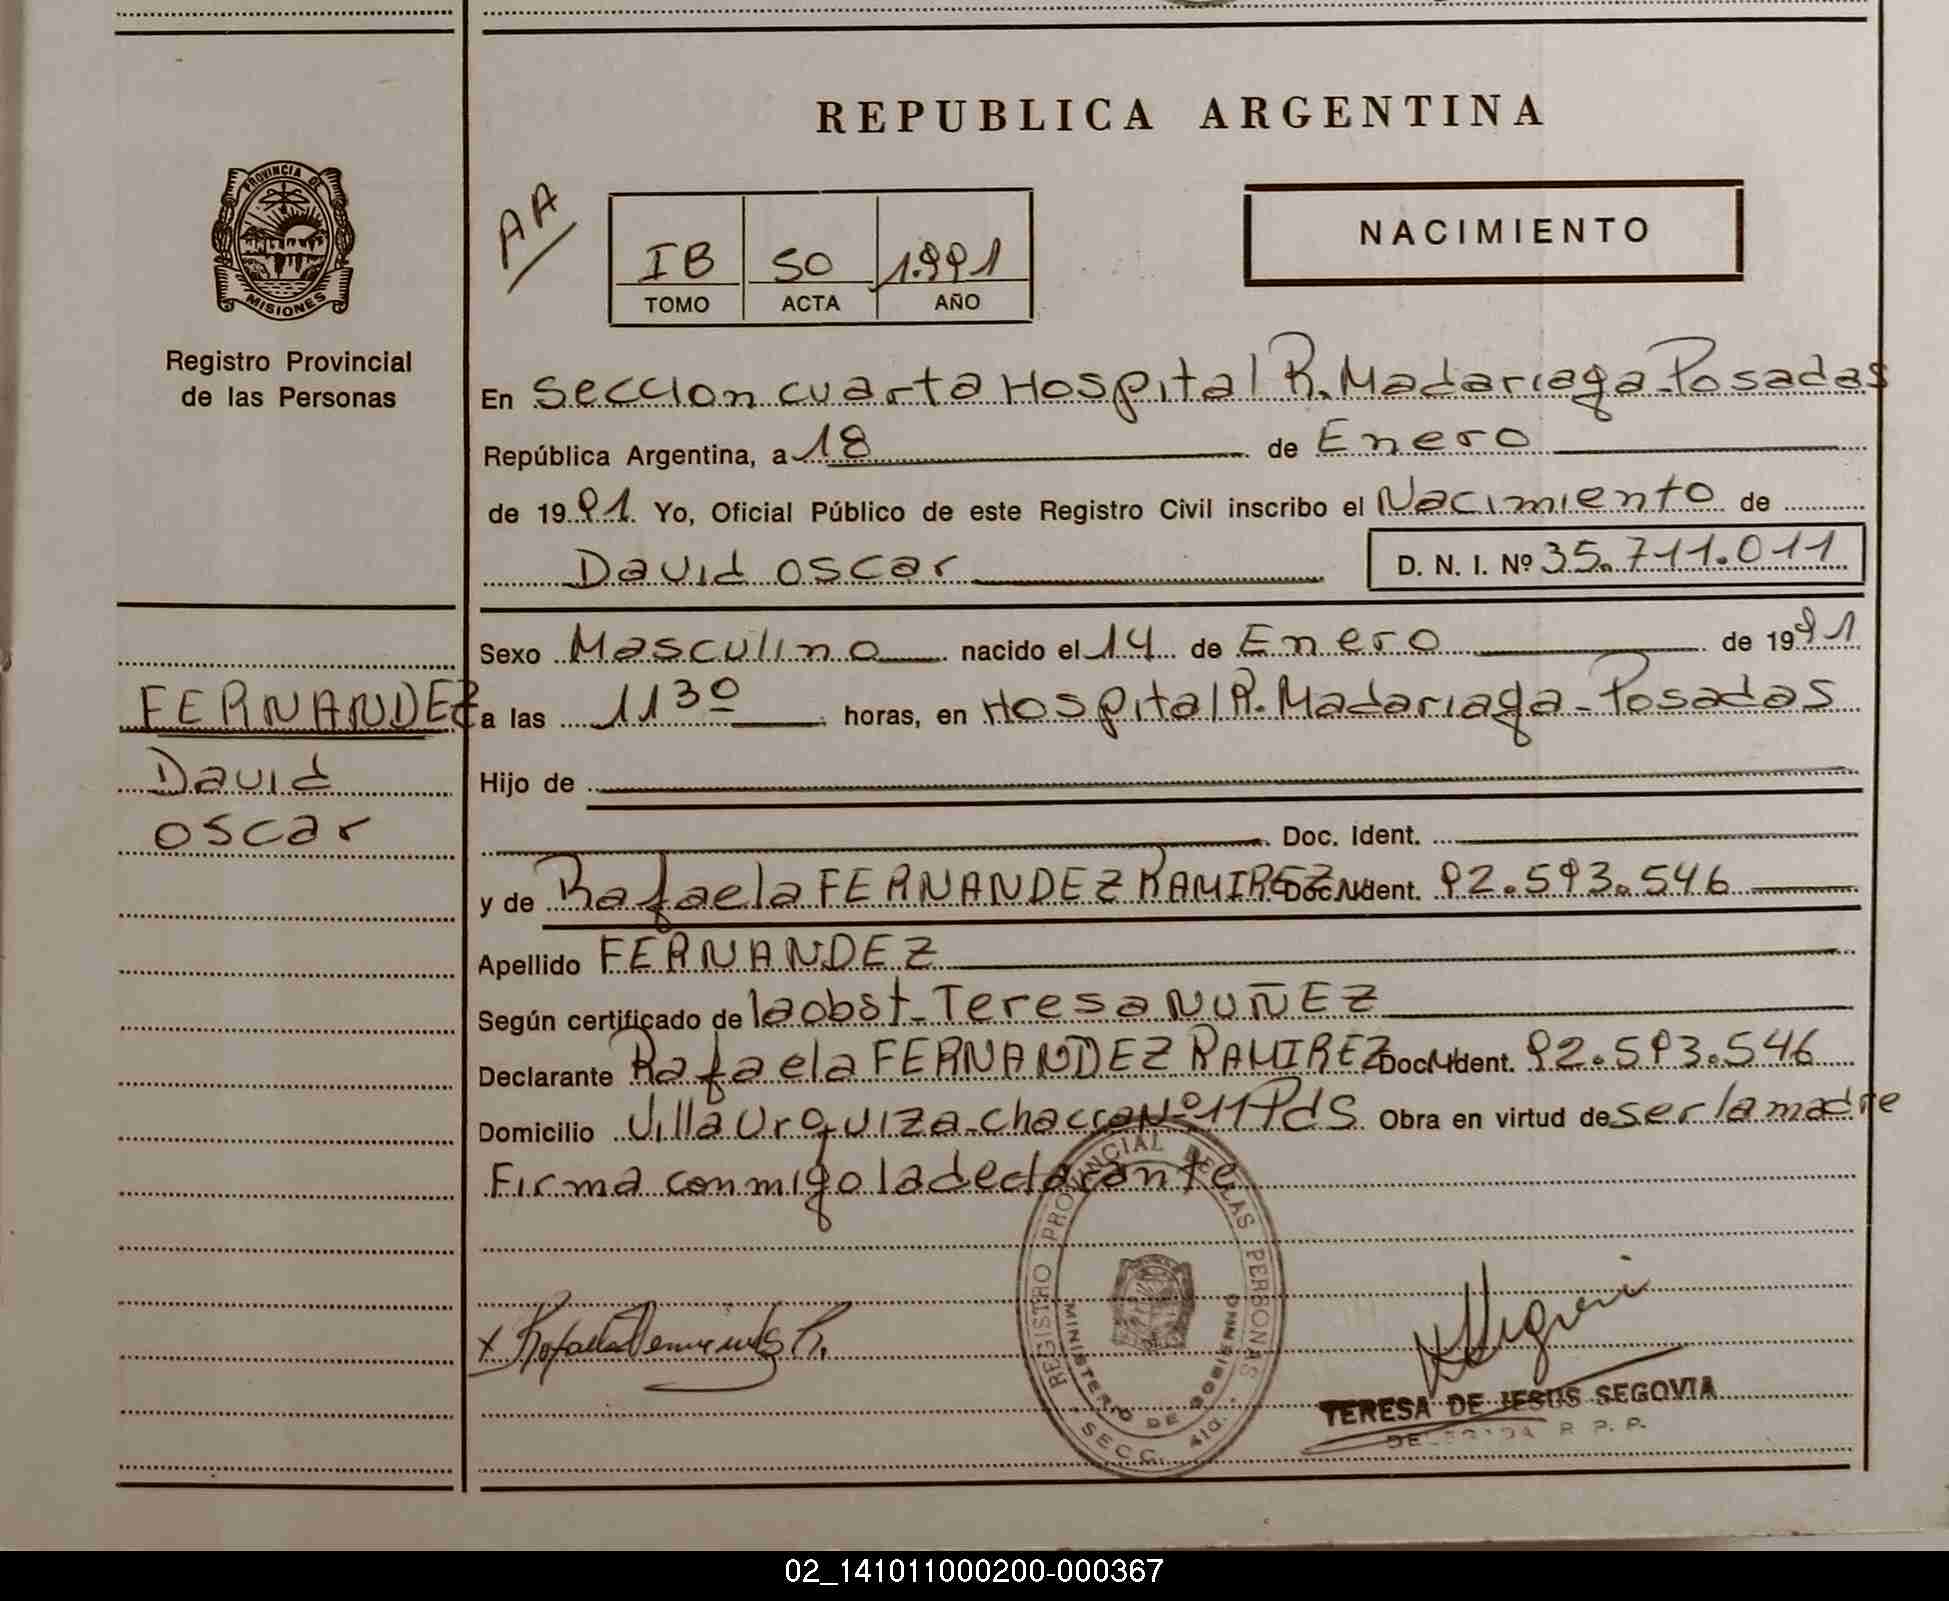 REPUBLICA ARGENTINA
PROVINCIA DE
MISIONES
Registro Provincial
de las Personas
AA
IB 50 1.991
TOMO ACTA AÑO
NACIMIENTO
En Seccion cuarta Hospital R. Madariaga - Posadas
República Argentina, a 18 de Enero
de 1991. Yo, Oficial Público de este Registro Civil inscribo el Nacimiento de
David oscar D. N. I. Nº 35.711.011
Sexo Masculino nacido el 14 de Enero de 1991
FERNANDEZ
David
oscar
a las 11 30 horas, en Hospital R. Madariaga - Posadas
Hijo de
Doc. Ident.
y de Rafaela FERNANDEZ RAMIREZ Doc. Ident. 92.593.546
Apellido FERNANDEZ
Según certificado de la obst - Teresa NUÑEZ
Declarante Rafaela FERNANDEZ RAMIREZ Doc. Ident. 92.593.546
Domicilio Villa Urquiza - chacra Nº 11 Pds Obra en virtud de ser la madre
Firma conmigo la declarante
REGISTRO PROVINCIAL DE LAS PERSONAS
MINISTERIO DE GOBIERNO
SECC. 4ta.
TERESA DE JESUS SEGOVIA
DELEGADA R. P. P.
02_141011000200-000367